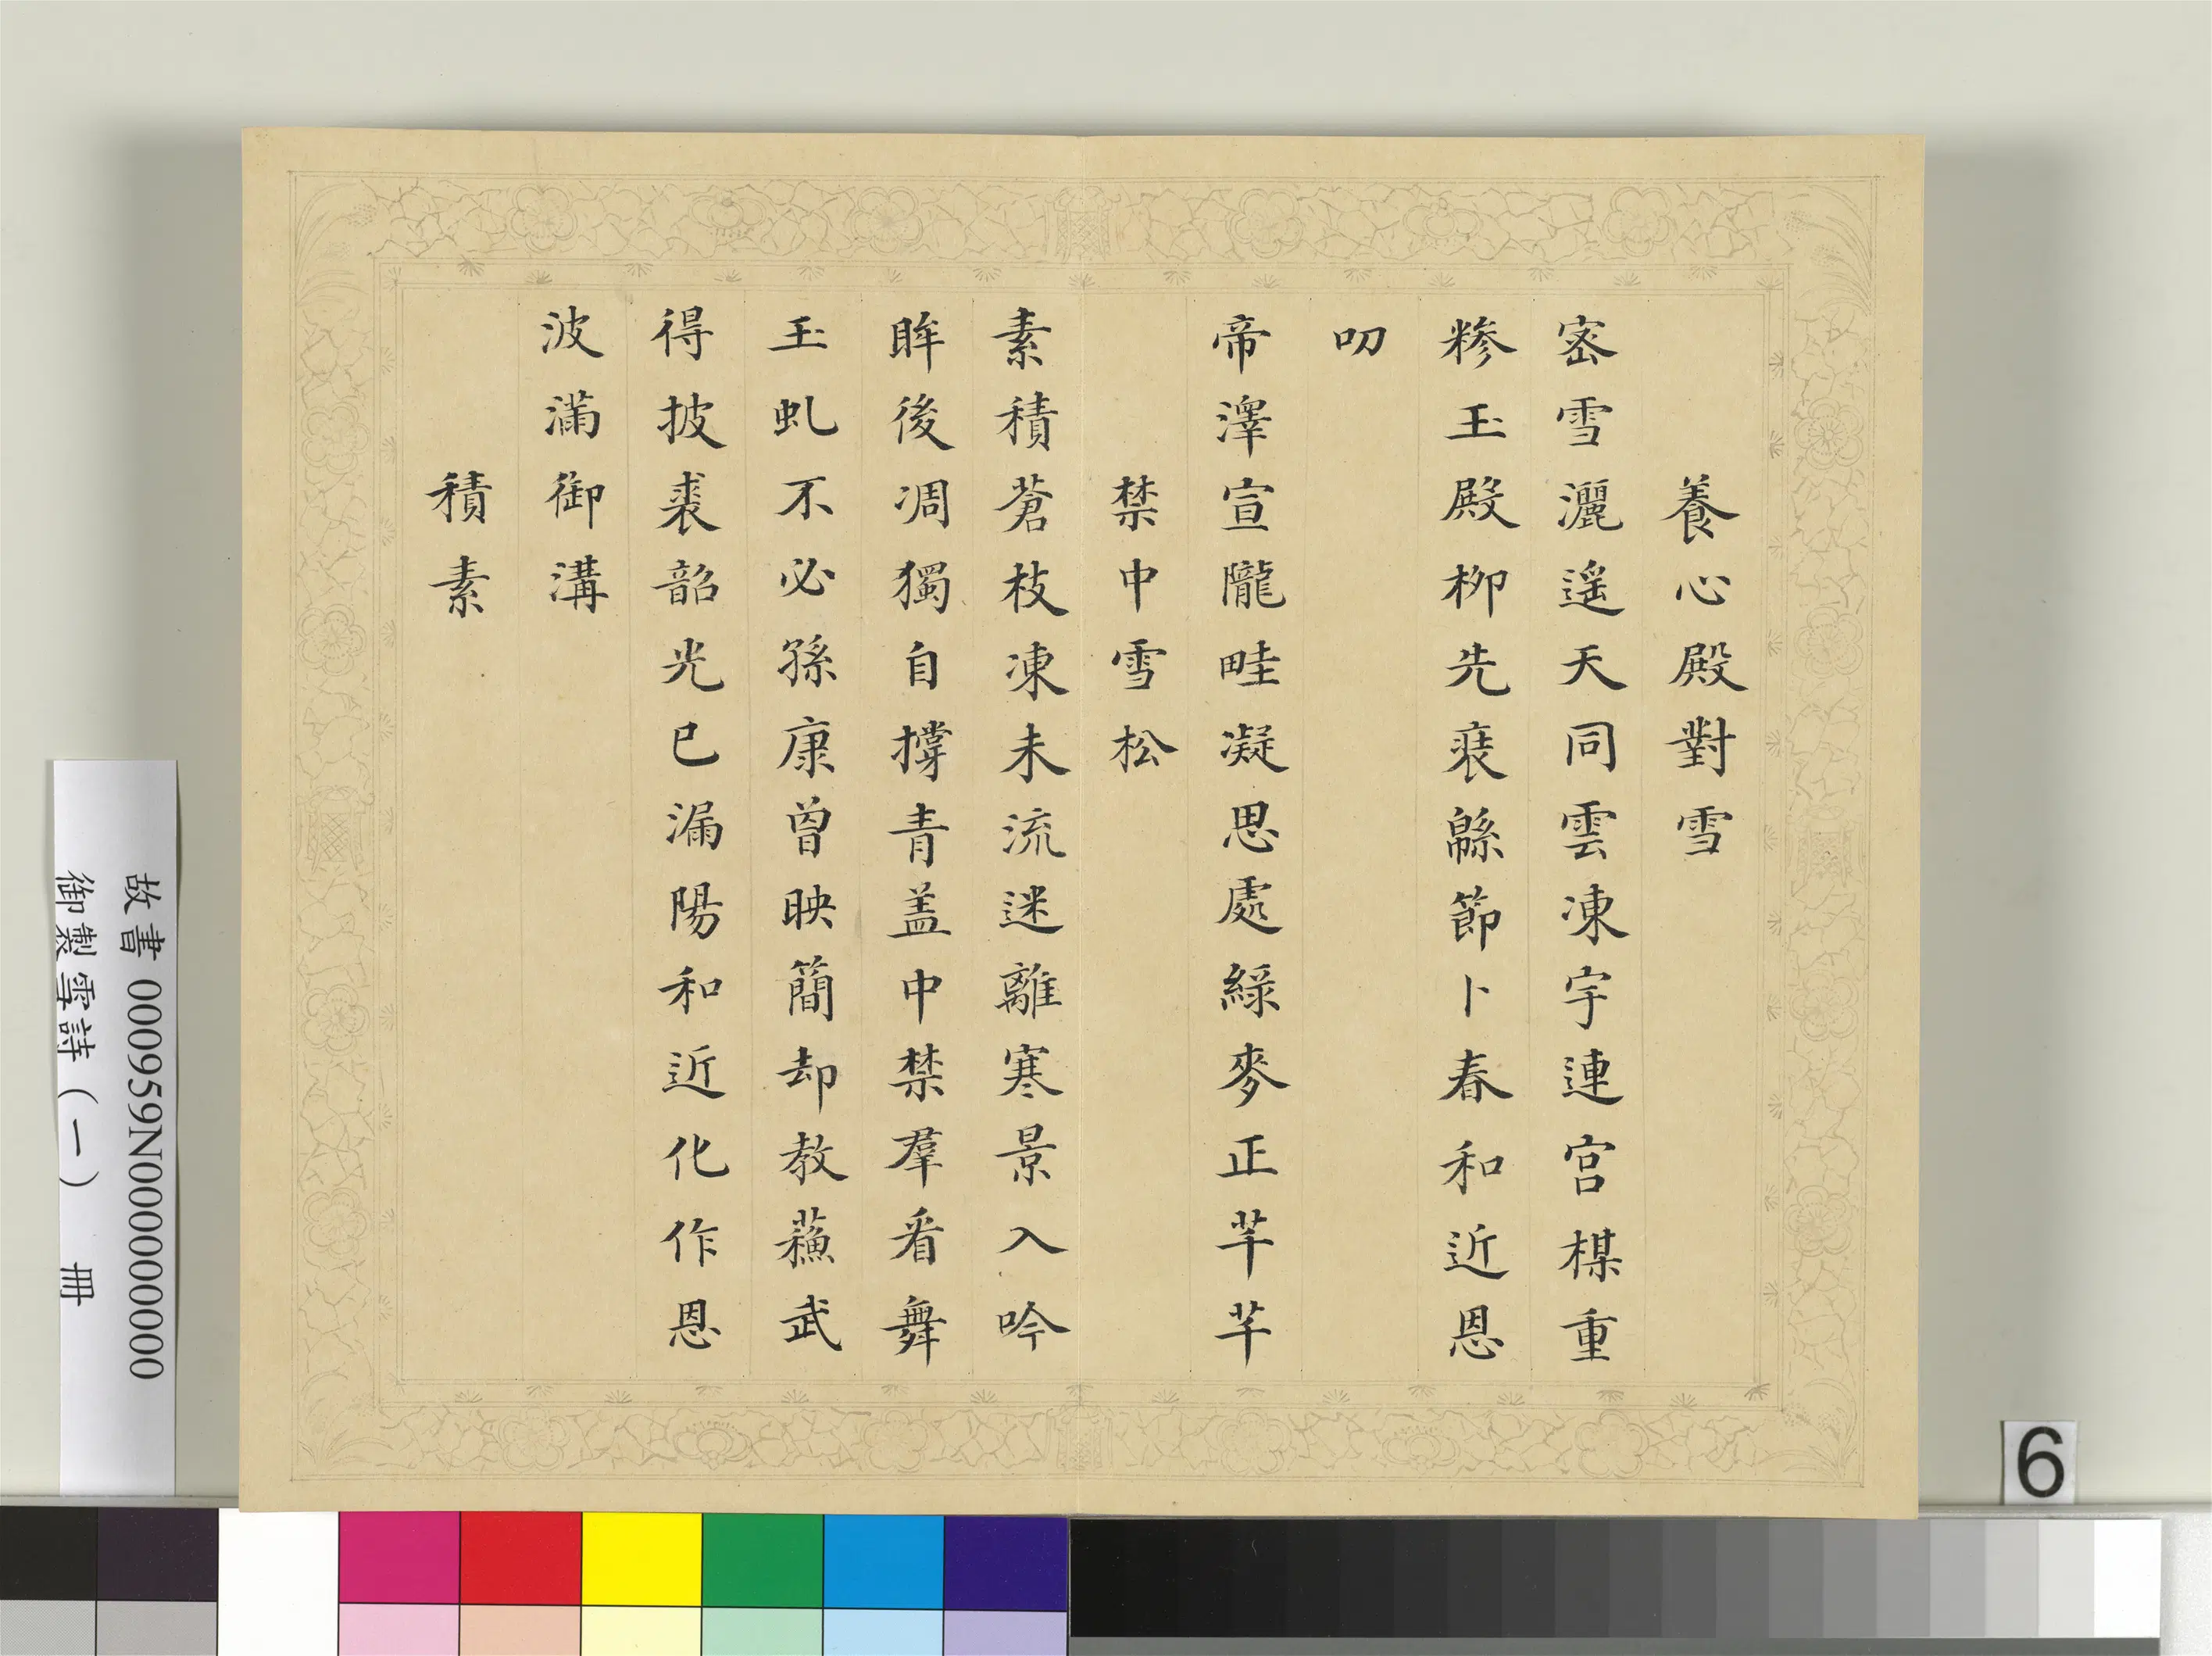 養心殿對雪
密雪灑遥天同雲凍宇連宮楳重
糝玉殿柳先裵緜節卜春和近恩
叨
帝澤宣隴畦凝思處綠麥正芊芊
禁中雪松
素積蒼枝凍未流迷離寒景入吟
眸後凋獨自撐青盖中禁羣看舞
玉虬不必孫康曾映簡却教蘓武
得披裘韶光已漏陽和近化作恩
波滿御溝
積素
故書 000959N000000000
御製雪詩（一） 冊
6